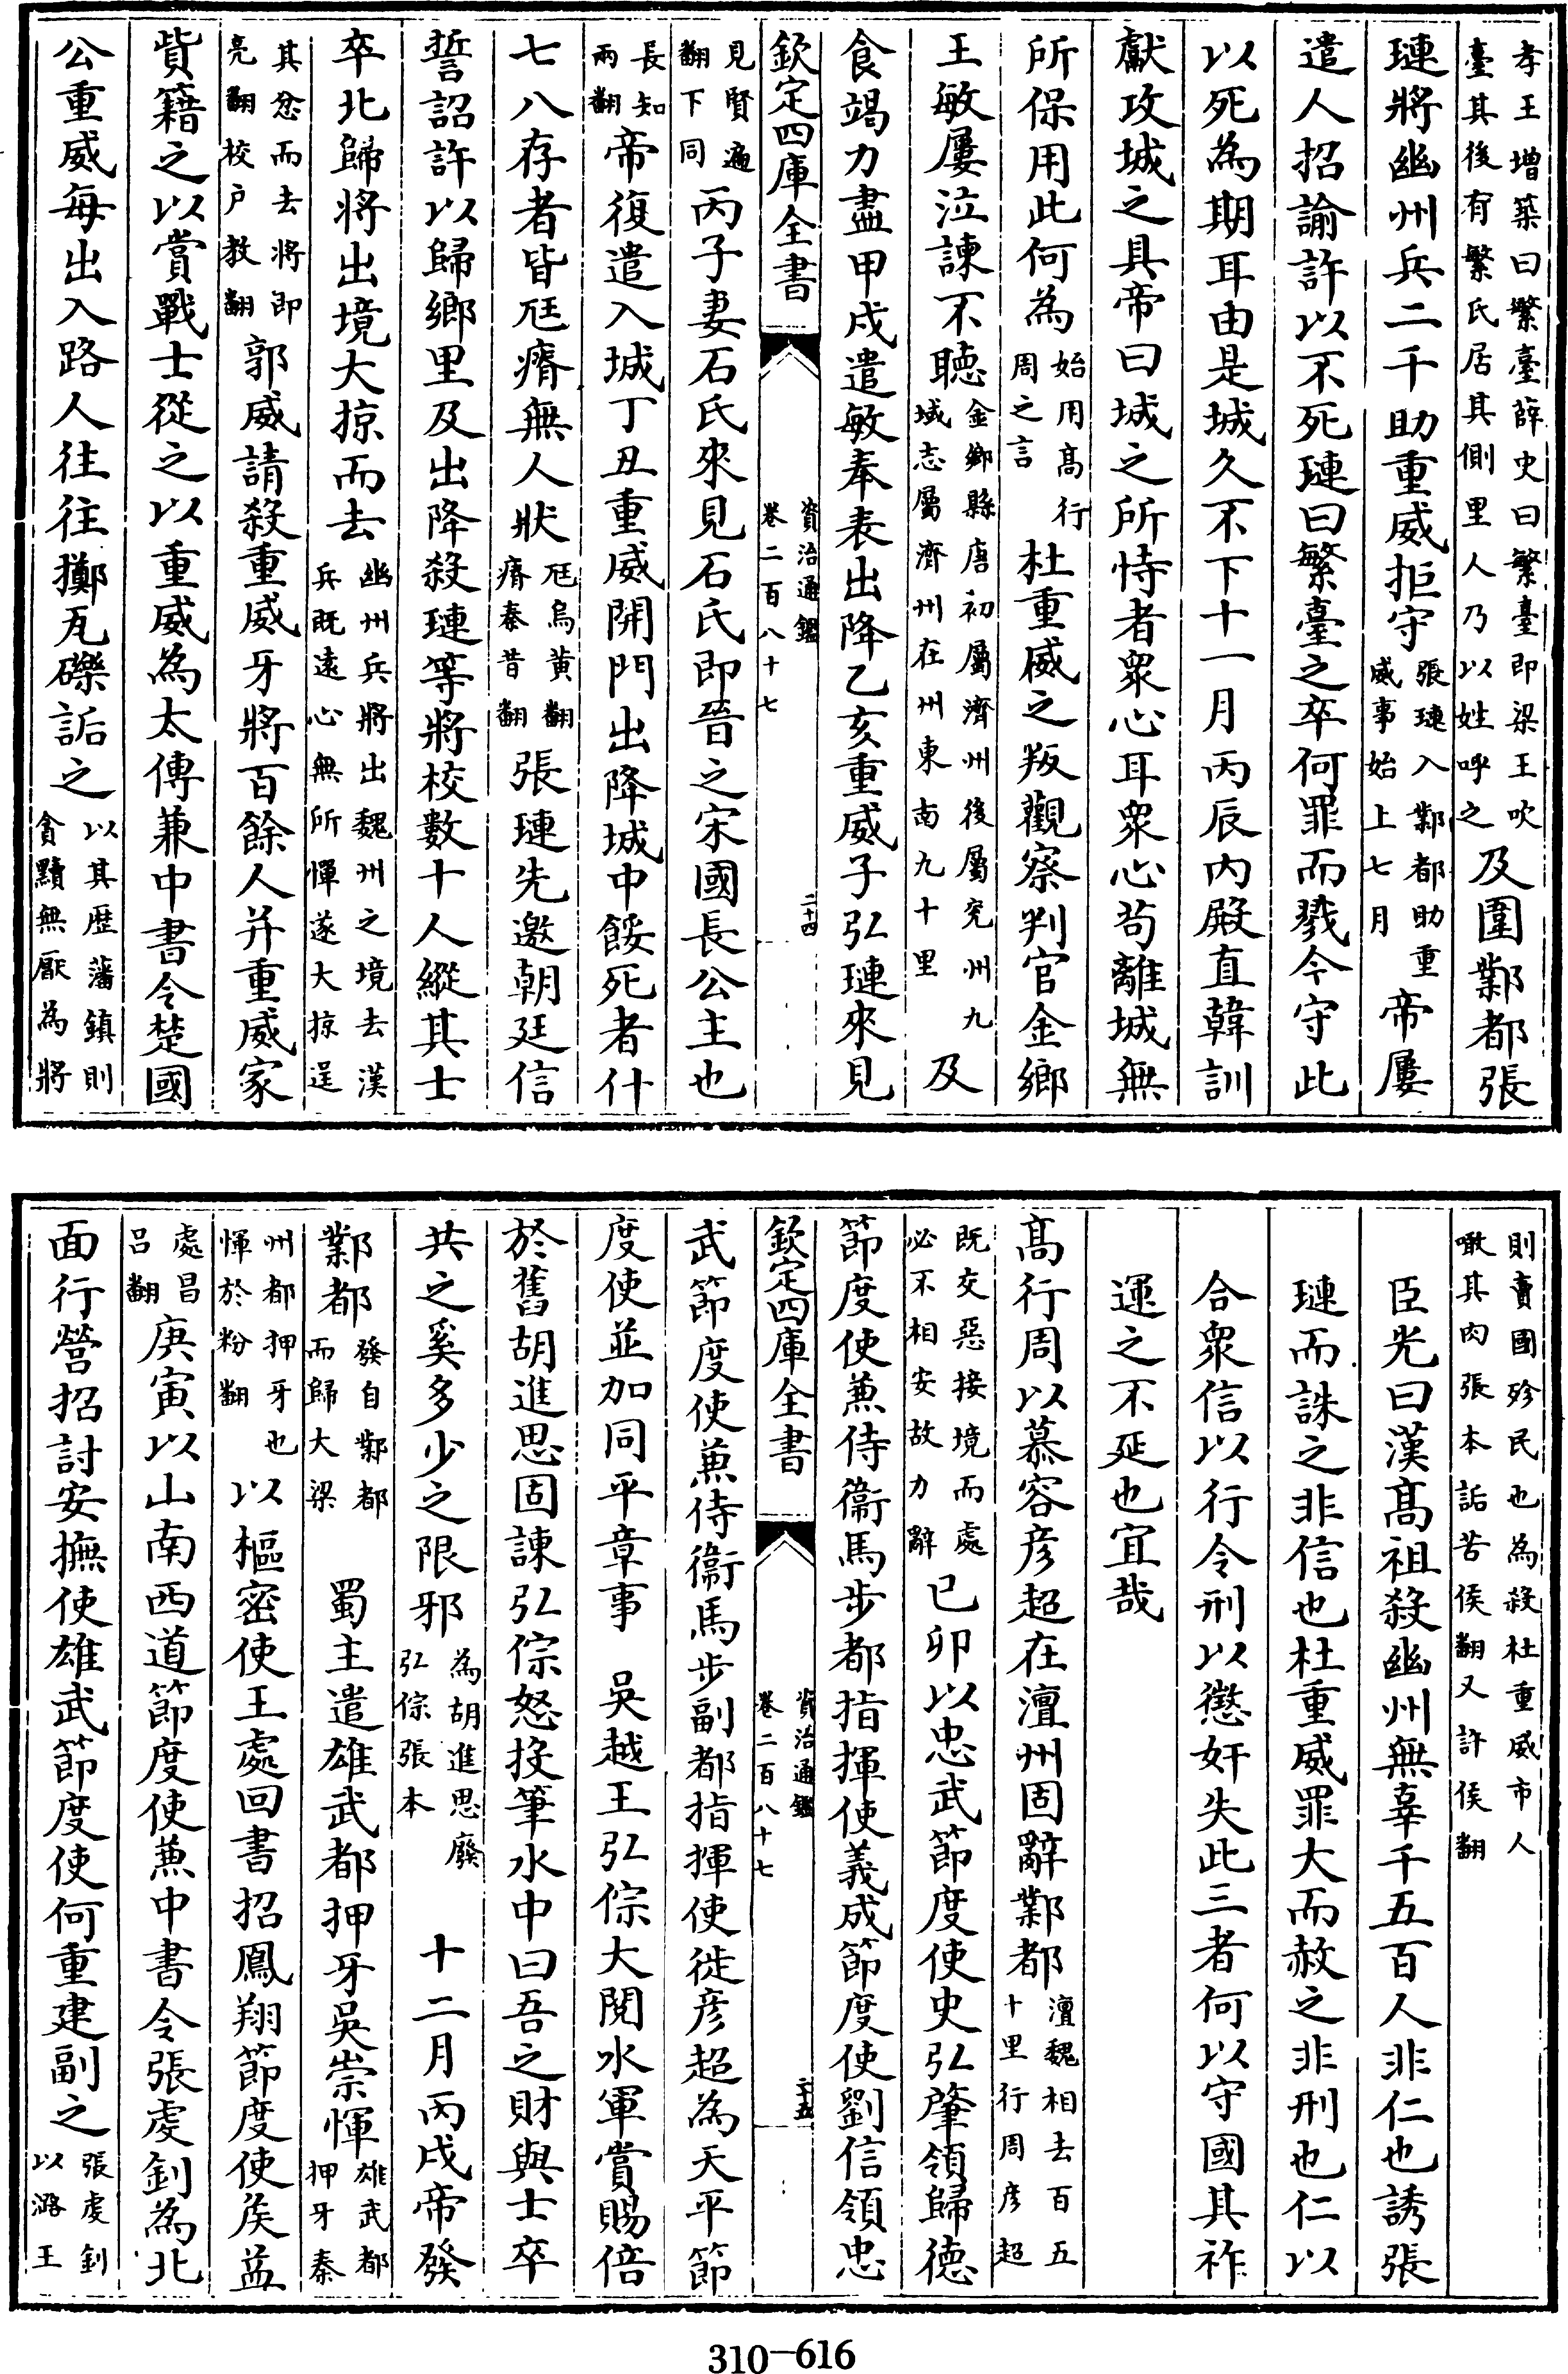 孝王増築曰繁臺薛史曰繁臺即梁王吹
臺其後有繁氏居其側里人乃以姓呼之及圍鄴都張
璉將幽州兵二千助重威拒守張璉入鄴都助重威事始上七月帝屢
遣人招諭許以不死璉曰繁臺之卒何罪而戮今守此
以死為期耳由是城久不下十一月丙辰内殿直韓訓
獻攻城之具帝曰城之所恃者衆心耳衆心苟離城無
所保用此何為始用高行周之言杜重威之叛觀察判官金鄉
王敏屢泣諫不聽金鄉縣唐初屬濟州後屬兖州九域志屬濟州在州東南九十里及
食竭力盡甲戌遣敏奉表出降乙亥重威子弘璉來見
欽定四庫全書
資治通鑑
卷二百八十七
二十四
見賢遍翻下同丙子妻石氏來見石氏即晉之宋國長公主也
長知兩翻帝復遣入城丁丑重威開門出降城中餒死者什
七八存者皆尫瘠無人狀尫烏黄翻瘠秦昔翻張璉先邀朝廷信
誓詔許以歸鄉里及出降殺璉等將校數十人縱其士
卒北歸將出境大掠而去幽州兵將出魏州之境去漢兵既遠心無所憚遂大掠逞
其忿而去將即亮翻校户教翻郭威請殺重威牙將百餘人并重威家
貲籍之以賞戰士從之以重威為太傅兼中書令楚國
公重威每出入路人往往擲瓦礫詬之以其歴藩鎮則貪黷無厭為將
則賣國殄民也為殺杜重威市人
噉其肉張本詬苦侯翻又許侯翻
臣光曰漢髙祖殺幽州無辜千五百人非仁也誘張
璉而誅之非信也杜重威罪大而赦之非刑也仁以
合衆信以行令刑以懲奸失此三者何以守國其祚
運之不延也宜哉
髙行周以慕容彦超在澶州固辭鄴都澶魏相去百五十里行周彦超
既交惡接境而處必不相安故力辭已卯以忠武節度使史弘肇領歸德
節度使兼侍衞馬步都指揮使義成節度使劉信領忠
欽定四庫全書
資治通鑑
卷二百八十七
二十五
武節度使兼侍衞馬步副都指揮使徙彦超為天平節
度使並加同平章事　吳越王弘倧大閱水軍賞賜倍
於舊胡進思固諫弘倧怒投筆水中曰吾之財與士卒
共之奚多少之限邪為胡進思廢弘倧張本　十二月丙戌帝發
鄴都發自鄴都而歸大梁　蜀主遣雄武都押牙吳崇惲雄武都押牙秦
州都押牙也惲於粉翻以樞密使王處回書招鳳翔節度使侯益
處昌吕翻庚寅以山南西道節度使兼中書令張虔釗為北
面行營招討安撫使雄武節度使何重建副之張虔釗以潞王
310-616